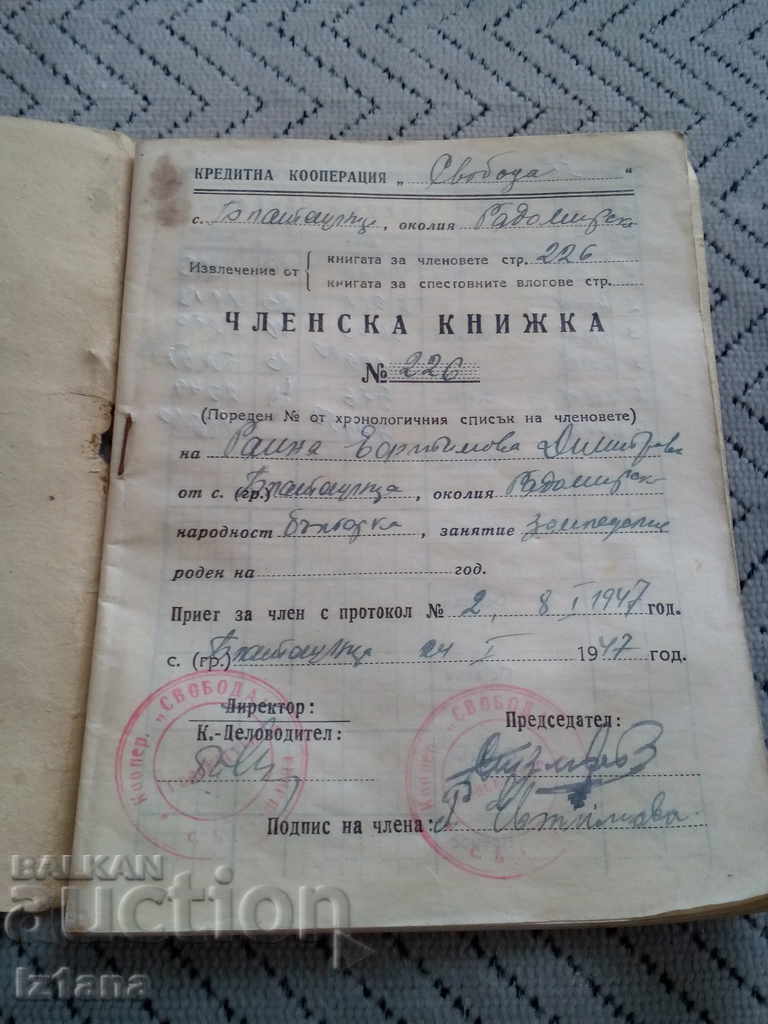 КРЕДИТНА КООПЕРАЦИЯ „ Свобода "
с. околия Радомирска
Извлечение от { книгата за членовете стр. 226
книгата за спестовните влогове стр.
ЧЛЕНСКА КНИЖКА
№ 226
(Пореден № от хронологичния списък на членовете)
на Раина Евтимова Димитрова
от с. (гр.) , околия Радомирска
народност българка , занятие земледелие
роден на год.
Приет за член с протокол № 2, 8 I 1947 год.
с. (гр.) 24 I 1947 год.
Директор:
К.-Деловодител:
Председател:
Подпис на члена: Р Евтимова
Коопер. „СВОБОДА"
Коопер. „СВОБОДА"
BALKAN
auction
iz1ana